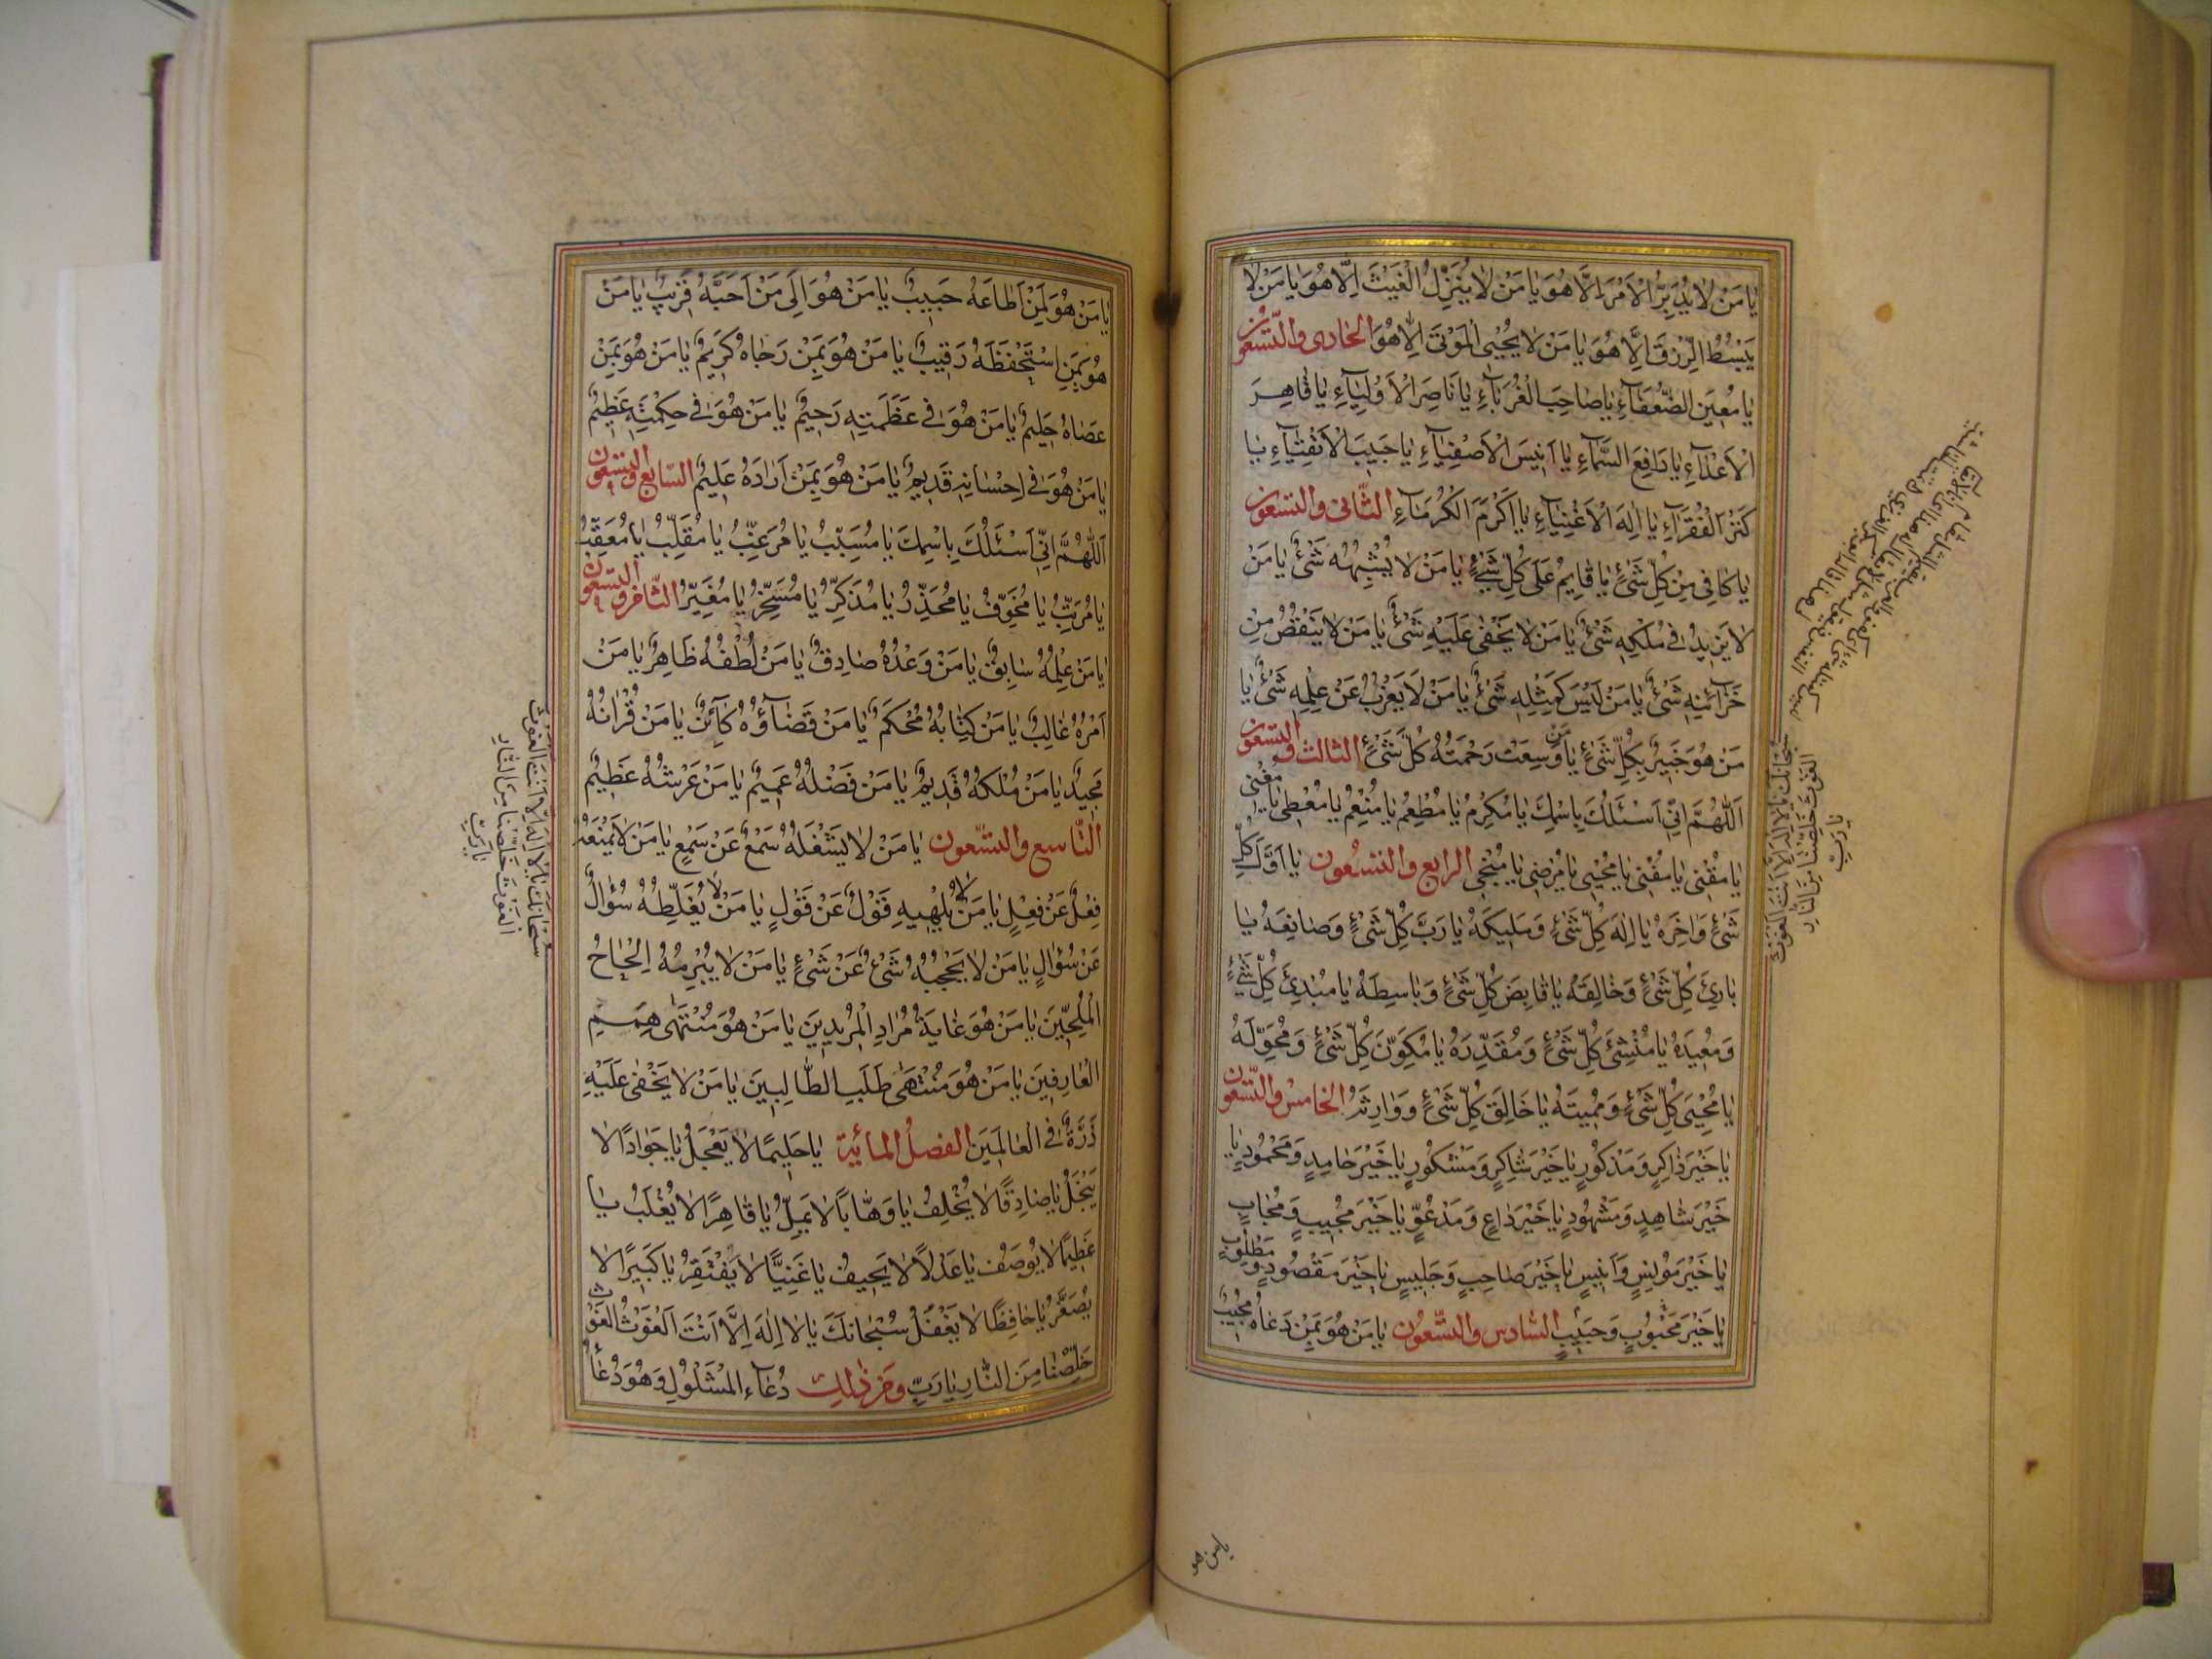 يا مَنْ لا يُدَبِّرُ الْاَمْرَ اِلَّا هُوَ يا مَنْ لا يُنَزِّلُ الْغَيْثَ اِلَّا هُوَ يا مَنْ لا
يَبْسُطُ الرِّزْقَ اِلَّا هُوَ يا مَنْ لا يُحْيِي الْمَوْتى اِلَّا هُوَ الحادى والتّسعون
يا مُعِينَ الضُّعَفآءِ يا صاحِبَ الْغُرَبآءِ يا ناصِرَ الْاَوْلِيآءِ يا قاهِرَ
الْاَعْدآءِ يا رافِعَ السَّمآءِ يا اَنِيسَ الْاَصْفِيآءِ يا حَبِيبَ الْاَتْقِيآءِ يا
كَنْزَ الْفُقَرآءِ يا اِلهَ الْاَغْنِيآءِ يا اَكْرَمَ الْكُرَمآءِ الثّانى والتسعون
يا كافِى مِنْ كُلِّ شَىْءٍ يا قائِمُ عَلى كُلِّ شَىْءٍ يا مَنْ لا يُشْبِهُهُ شَىْءٌ يا مَنْ
لا يَزِيدُ فى مُلْكِهِ شَىْءٌ يا مَنْ لا يَخْفى عَلَيْهِ شَىْءٌ يا مَنْ لا يَنْقُصُ مِنْ
خَزآئِنِهِ شَىْءٌ يا مَنْ لَيْسَ كَمِثْلِهِ شَىْءٌ يا مَنْ لا يَعْزُبُ عَنْ عِلْمِهِ شَىْءٌ يا
مَنْ هُوَ خَبِيرٌ بِكُلِّ شَىْءٍ يا مَنْ وَسِعَتْ رَحْمَتُهُ كُلَّ شَىْءٍ الثالث والتسعون
اَللّهُمَّ اِنّى اَسْئَلُكَ بِاسْمِكَ يا مُكْرِمُ يا مُطْعِمُ يا مُنْعِمُ يا مُعْطِى يا مُغْنِى
يا مُقْنِى يا مُفْنِى يا مُحْيِى يا مُرْضِى يا مُنْجِى الرابع والتسعون يا اَوَّلَ كُلِّ
شَىْءٍ وَاخِرَهُ يا اِلهَ كُلِّ شَىْءٍ وَمَلِيكَهُ يا رَبَّ كُلِّ شَىْءٍ وَصانِعَهُ يا
بارِئَ كُلِّ شَىْءٍ وَخالِقَهُ يا قابِضَ كُلِّ شَىْءٍ وَباسِطَهُ يا مُبْدِئَ كُلِّ شَىْءٍ
وَمُعِيدَهُ يا مُنْشِئَ كُلِّ شَىْءٍ وَمُقَدِّرَهُ يا مُكَوِّنَ كُلِّ شَىْءٍ وَمُحَوِّلَهُ
يا مُحْيِىَ كُلِّ شَىْءٍ وَمُمِيتَهُ يا خالِقَ كُلِّ شَىْءٍ وَوارِثَهُ الخامس والتّسعون
يا خَيْرَ ذاكِرٍ وَمَذْكُورٍ يا خَيْرَ شاكِرٍ وَمَشْكُورٍ يا خَيْرَ حامِدٍ وَمَحْمُودٍ يا
خَيْرَ شاهِدٍ وَمَشْهُودٍ يا خَيْرَ داعٍ وَمَدْعُوٍّ يا خَيْرَ مُجِيبٍ وَمُجابٍ
يا خَيْرَ مُونِسٍ وَاَنِيسٍ يا خَيْرَ صاحِبٍ وَجَلِيسٍ يا خَيْرَ مَقْصُودٍ وَمَطْلُوبٍ
يا خَيْرَ مَحْبُوبٍ وَحَبِيبٍ السّادس والتّسعون يا مَنْ هُوَ بِمَنْ دَعاهُ مُجِيبٌ
سُبْحانَكَ يا لا اِلهَ اِلَّا اَنْتَ الْغَوْثَ
الْغَوْثَ خَلِّصْنا مِنَ النّارِ
يا رَبِّ
يا من هو
يا مَنْ هُوَ لِمَنْ اَطاعَهُ حَبِيبٌ يا مَنْ هُوَ اِلى مَنْ اَحَبَّهُ قَرِيبٌ يا مَنْ
هُوَ بِمَنِ اسْتَحْفَظَهُ رَقِيبٌ يا مَنْ هُوَ بِمَنْ رَجاهُ كَرِيمٌ يا مَنْ هُوَ بِمَنْ
عَصاهُ حَلِيمٌ يا مَنْ هُوَ فى عَظَمَتِهِ رَحِيمٌ يا مَنْ هُوَ فى حِكْمَتِهِ عَظِيمٌ
يا مَنْ هُوَ فى اِحْسانِهِ قَدِيمٌ يا مَنْ هُوَ بِمَنْ اَرادَهُ عَلِيمٌ السّابع والتسعون
اَللّهُمَّ اِنّى اَسْئَلُكَ بِاسْمِكَ يا مُسَبِّبُ يا مُرَغِّبُ يا مُقَلِّبُ يا مُعَقِّبُ
يا مُرَتِّبُ يا مُخَوِّفُ يا مُحَذِّرُ يا مُذَكِّرُ يا مُسَخِّرُ يا مُغَيِّرُ الثّامن والتسعون
يا مَنْ عِلْمُهُ سابِقٌ يا مَنْ وَعْدُهُ صادِقٌ يا مَنْ لُطْفُهُ ظاهِرٌ يا مَنْ
اَمْرُهُ غالِبٌ يا مَنْ كِتابُهُ مُحْكَمٌ يا مَنْ قَضآؤُهُ كآئِنٌ يا مَنْ قُرْانُهُ
مَجِيدٌ يا مَنْ مُلْكُهُ قَدِيمٌ يا مَنْ فَضْلُهُ عَمِيمٌ يا مَنْ عَرْشُهُ عَظِيمٌ
التّاسع والتسّعون يا مَنْ لا يَشْغَلُهُ سَمْعٌ عَنْ سَمْعٍ يا مَنْ لا يَمْنَعُهُ
فِعْلٌ عَنْ فِعْلٍ يا مَنْ لا يُلْهِيهِ قَوْلٌ عَنْ قَوْلٍ يا مَنْ لا يُغَلِّطُهُ سُؤالٌ
عَنْ سُؤالٍ يا مَنْ لا يَحْجُبُهُ شَىْءٌ عَنْ شَىْءٍ يا مَنْ لا يُبْرِمُهُ اِلْحاحُ
الْمُلِحِّينَ يا مَنْ هُوَ غايَةُ مُرادِ الْمُرِيدِينَ يا مَنْ هُوَ مُنْتَهى هِمَمِ
الْعارِفِينَ يا مَنْ هُوَ مُنْتَهى طَلَبِ الطّالِبِينَ يا مَنْ لا يَخْفى عَلَيْهِ
ذَرَّةٌ فِى الْعالَمِينَ الفصل المائية يا حَلِيمًا لا يَعْجَلُ يا جَوادًا لا
يَبْخَلُ يا صادِقًا لا يُخْلِفُ يا وَهّابًا لا يَمِلُّ يا قاهِرًا لا يُغْلَبُ يا
عَظِيمًا لا يُوصَفُ يا عَدْلًا لا يَحِيفُ يا غَنِيًّا لا يَفْتَقِرُ يا كَبِيرًا لا
يُصْغَرُ يا حافِظًا لا يَغْفَلُ سُبْحانَكَ يا لا اِلهَ اِلَّا اَنْتَ الْغَوْثَ الْغَوْثَ
خَلِّصْنا مِنَ النّارِ يا رَبِّ ومن ذلك دُعآء الْمَشْلُولِ وَهُوَ دُعآء
سُبْحانَكَ يا لا اِلهَ اِلَّا اَنْتَ الْغَوْثَ
الْغَوْثَ خَلِّصْنا مِنَ النّارِ
يا رَبِّ